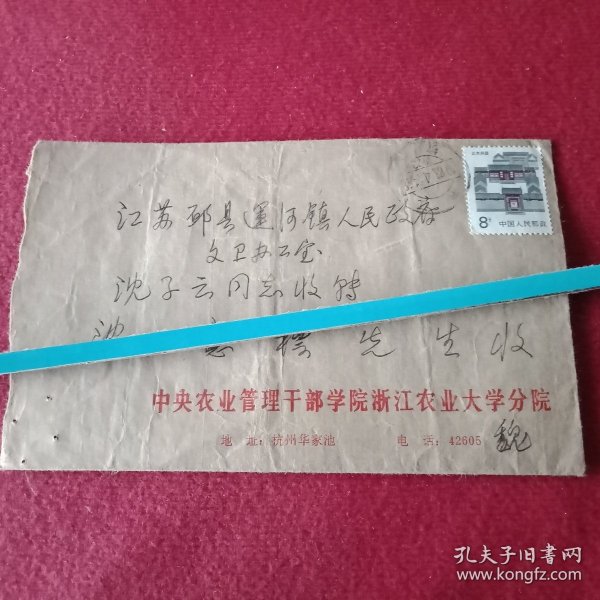 北京民居
8分 中国人民邮政
江苏邳县运河镇人民政府
文卫办公室
沈子云同志收转
沈 先生收
中央农业管理干部学院浙江农业大学分院
地 址：杭州华家池 电 话：42605 魏
孔夫子旧书网
www.kongfz.com